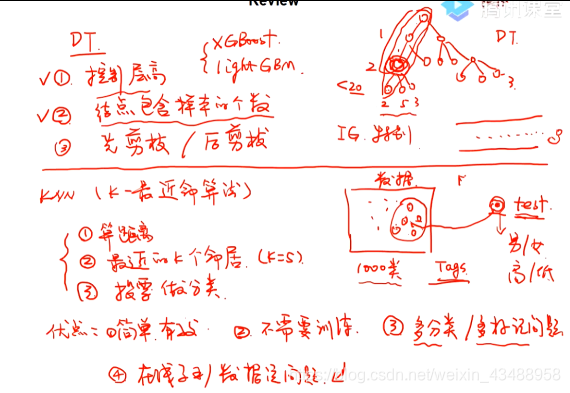 Review
腾讯课堂
DT.
{ XGBoost.
lightGBM
1
DT.
✓① 控制层高
2
3.
<20
2 5 3
✓② 结点包含样本的个数
③ 先剪枝 / 后剪枝
IG.
KNN (K-最近邻算法)
数据
F
① 算距离
test.
② 最近的K个邻居. (K=5)
男/女
③ 投票做分类.
1000类
Tags
高/低
优点: ①简单.有效. ② 不需要训练. ③ 多分类/多标记问题
④ 在线 数据 问题.
https://blog.csdn.net/weixin_43488958